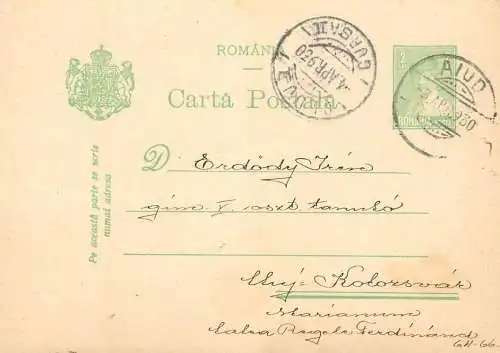 ROMÂNIA
Carta Poștala
CLUJ
CURSA
4 APR 930
AIUD
APR 930
ROMANIA
D Erdődy Irén
gim. V. oszt. tanuló
Cluj-Kolozsvár
Marianum
Calea Regele Ferdinánd
GH-66
Pe această parte se scrie
numai adresa